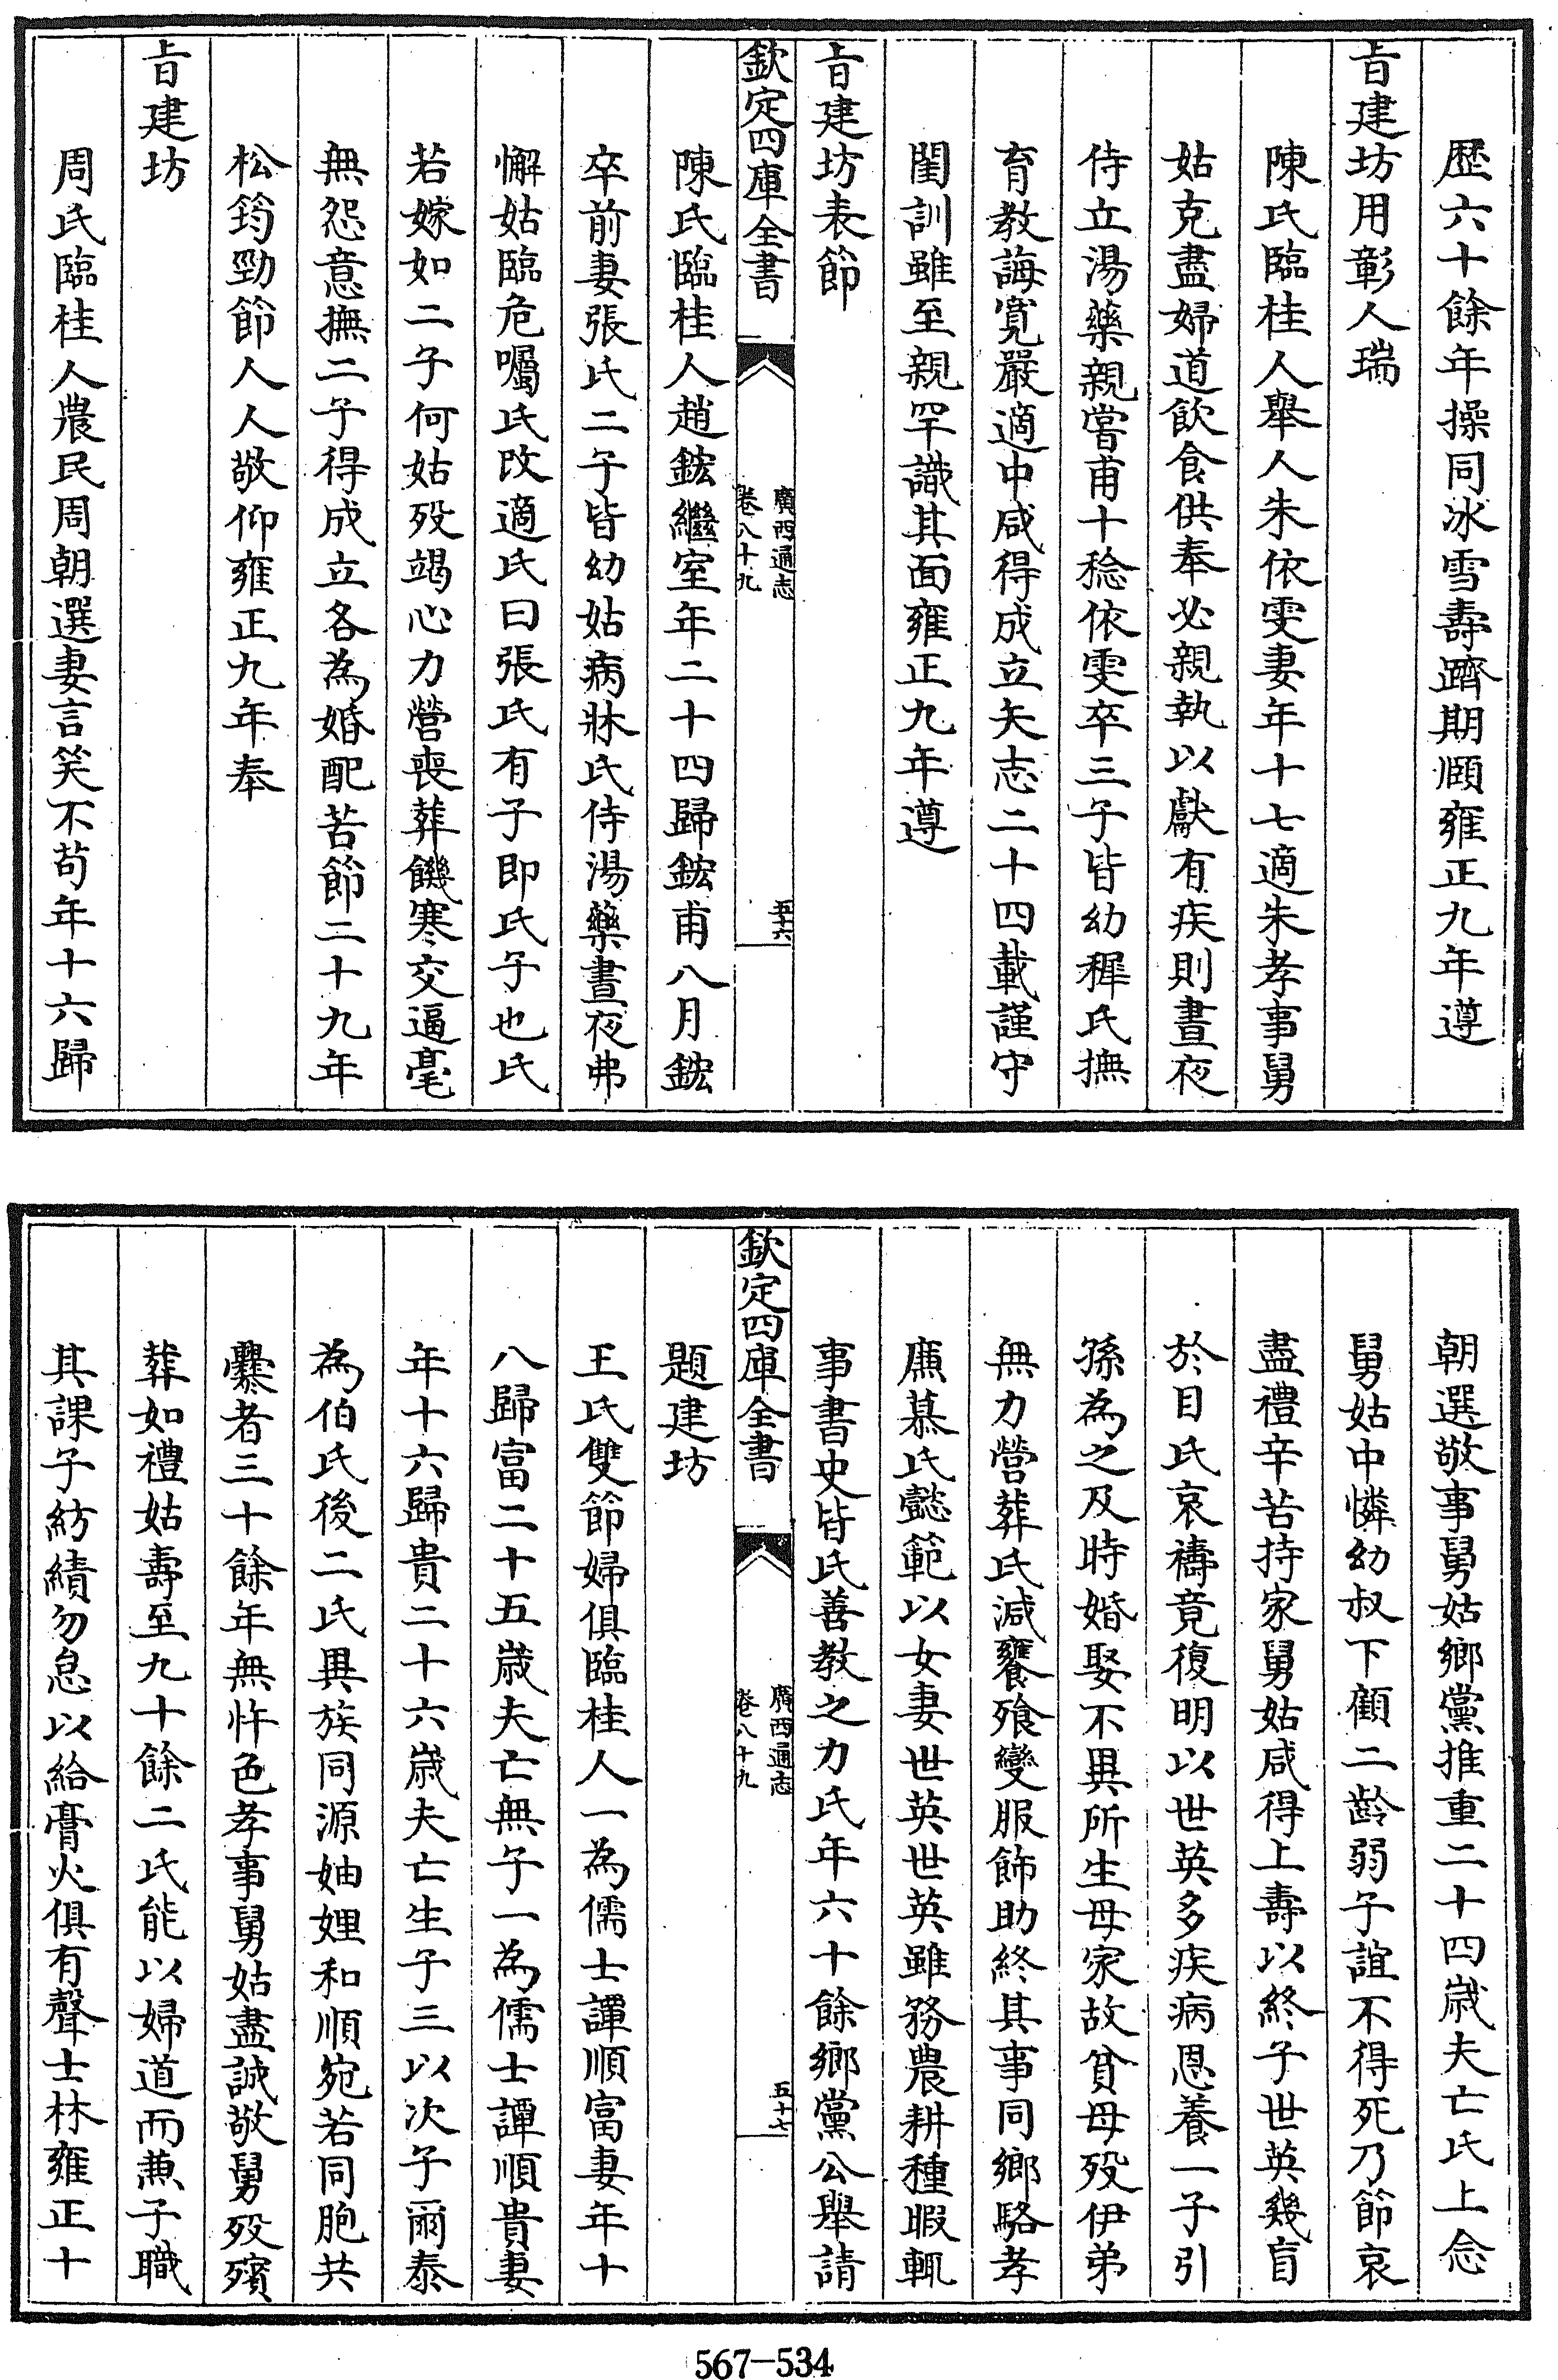 歴六十餘年操同冰雪壽躋期頤雍正九年遵
㫖建坊用彰人瑞
陳氏臨桂人舉人朱依雯妻年十七適朱孝事舅
姑克盡婦道飲食供奉必親執以獻有疾則晝夜
侍立湯藥親嘗甫十稔依雯卒三子皆幼穉氏撫
育教誨寛嚴適中咸得成立矢志二十四載謹守
閨訓雖至親罕識其面雍正九年遵
㫖建坊表節
欽定四庫全書
廣西通志
卷八十九
五十六
陳氏臨桂人趙鋐繼室年二十四歸鋐甫八月鋐
卒前妻張氏二子皆幼姑病牀氏侍湯藥晝夜弗
懈姑臨危囑氏改適氏曰張氏有子即氏子也氏
若嫁如二子何姑歿竭心力營喪葬饑寒交逼毫
無怨意撫二子得成立各為婚配苦節二十九年
松筠勁節人人敬仰雍正九年奉
㫖建坊
周氏臨桂人農民周朝選妻言笑不苟年十六歸
朝選敬事舅姑鄉黨推重二十四嵗夫亡氏上念
舅姑中憐幼叔下顧二齡弱子誼不得死乃節哀
盡禮辛苦持家舅姑咸得上壽以終子世英幾盲
於目氏哀禱竟復明以世英多疾病恩養一子引
孫為之及時婚娶不異所生母家故貧母歿伊弟
無力營葬氏減饔飱變服飾助終其事同鄉駱孝
廉慕氏懿範以女妻世英世英雖務農耕種暇輒
事書史皆氏善教之力氏年六十餘鄉黨公舉請
欽定四庫全書
廣西通志
卷八十九
五十七
題建坊
王氏雙節婦俱臨桂人一為儒士譚順富妻年十
八歸富二十五嵗夫亡無子一為儒士譚順貴妻
年十六歸貴二十六嵗夫亡生子三以次子爾泰
為伯氏後二氏異族同源妯娌和順宛若同胞共
爨者三十餘年無忤色孝事舅姑盡誠敬舅歿殯
葬如禮姑壽至九十餘二氏能以婦道而兼子職
其課子紡績勿怠以給膏火俱有聲士林雍正十
567—534